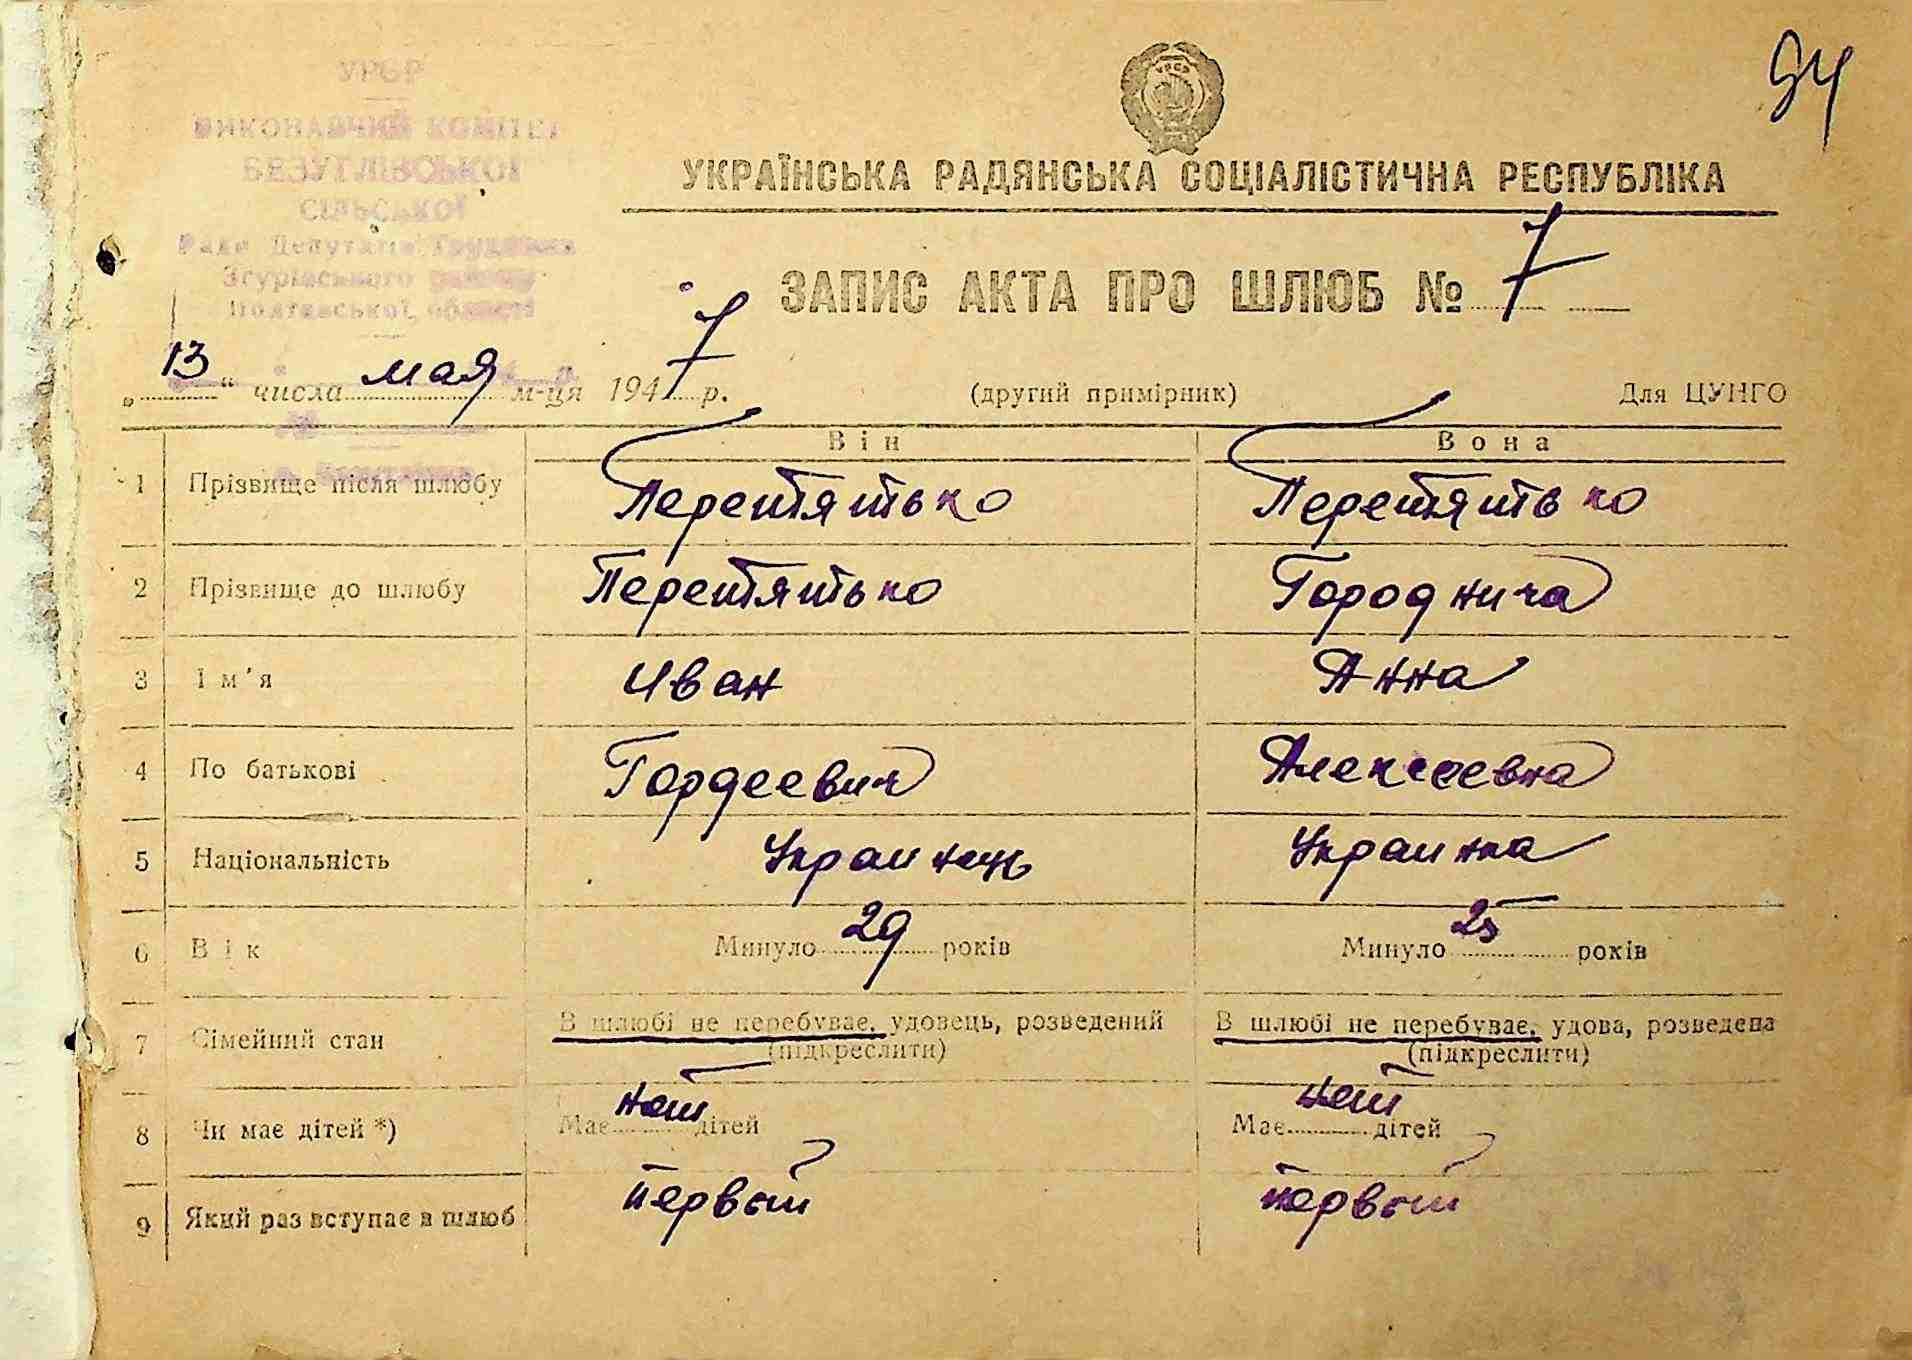 94
УРСР
ВИКОНАВЧИЙ КОМІТЕТ
БЕЗУГЛІВСЬКОЇ
СІЛЬСЬКОЇ
Ради Депутатів Трудящих
Згурівського району
Полтавської області
УРСР
УКРАЇНСЬКА РАДЯНСЬКА СОЦІАЛІСТИЧНА РЕСПУБЛІКА
ЗАПИС АКТА ПРО ШЛЮБ № 7
„13“ числа мая м-ця 1947 р. (другий примірник) Для ЦУНГО
Він Вона
1 Прізвище після шлюбу Перетятько Перетятько
2 Прізвище до шлюбу Перетятько Городнича
3 Ім'я Иван Анна
4 По батькові Гордеевич Алексеевна
5 Національність Украинець Украинка
6 Вік Минуло 29 років Минуло 25 років
7 Сімейний стан В шлюбі не перебуває, удовець, розведений В шлюбі не перебуває, удова, розведена
(підкреслити) (підкреслити)
8 Чи має дітей *) Має нет дітей Має нет дітей
9 Який раз вступає в шлюб первый первый